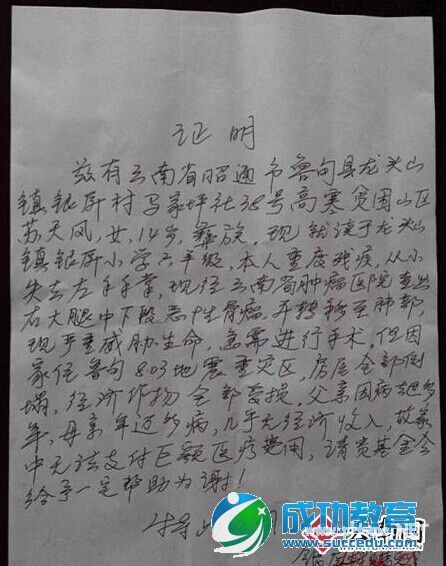 证明
兹有云南省昭通市鲁甸县龙头山
镇银屏村马家坪社38号高寒贫困山区
苏天凤,女,14岁,彝族,现就读于龙头山
镇银屏小学二年级,本人重度残疾,从小
失去左手手掌,现经云南省肿瘤医院查出
右大腿中下段恶性骨瘤,并转移至肺部,
现严重威胁生命,急需进行手术,但因
家住鲁甸803地震重灾区,房屋全部倒
塌,经济作物全部毁损,父亲因病去世多
年,母亲年迈多病,几乎无经济收入,故家
中无法支付巨额医疗费用,请贵基金会
给予一定帮助为谢!
成功教育
www.succedu.com